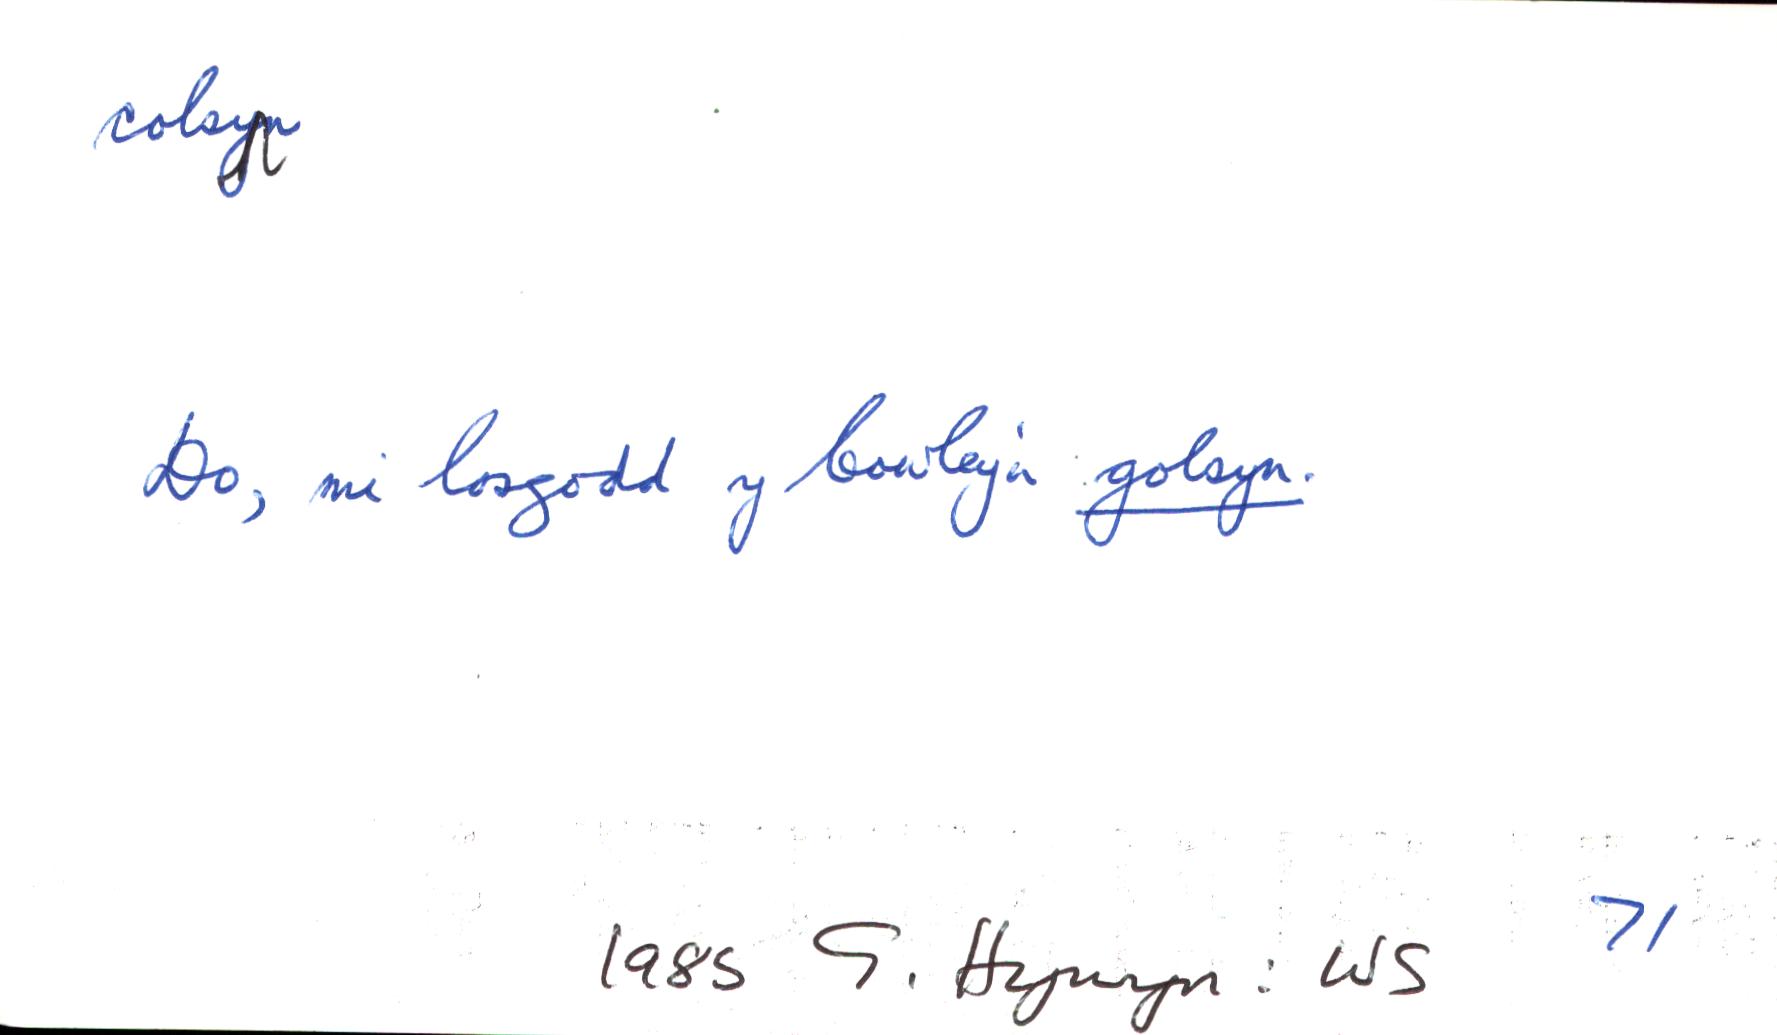 colsyn
Do, mi losgodd y bowleja golsyn.
71
1985 G. Hywyn: WS